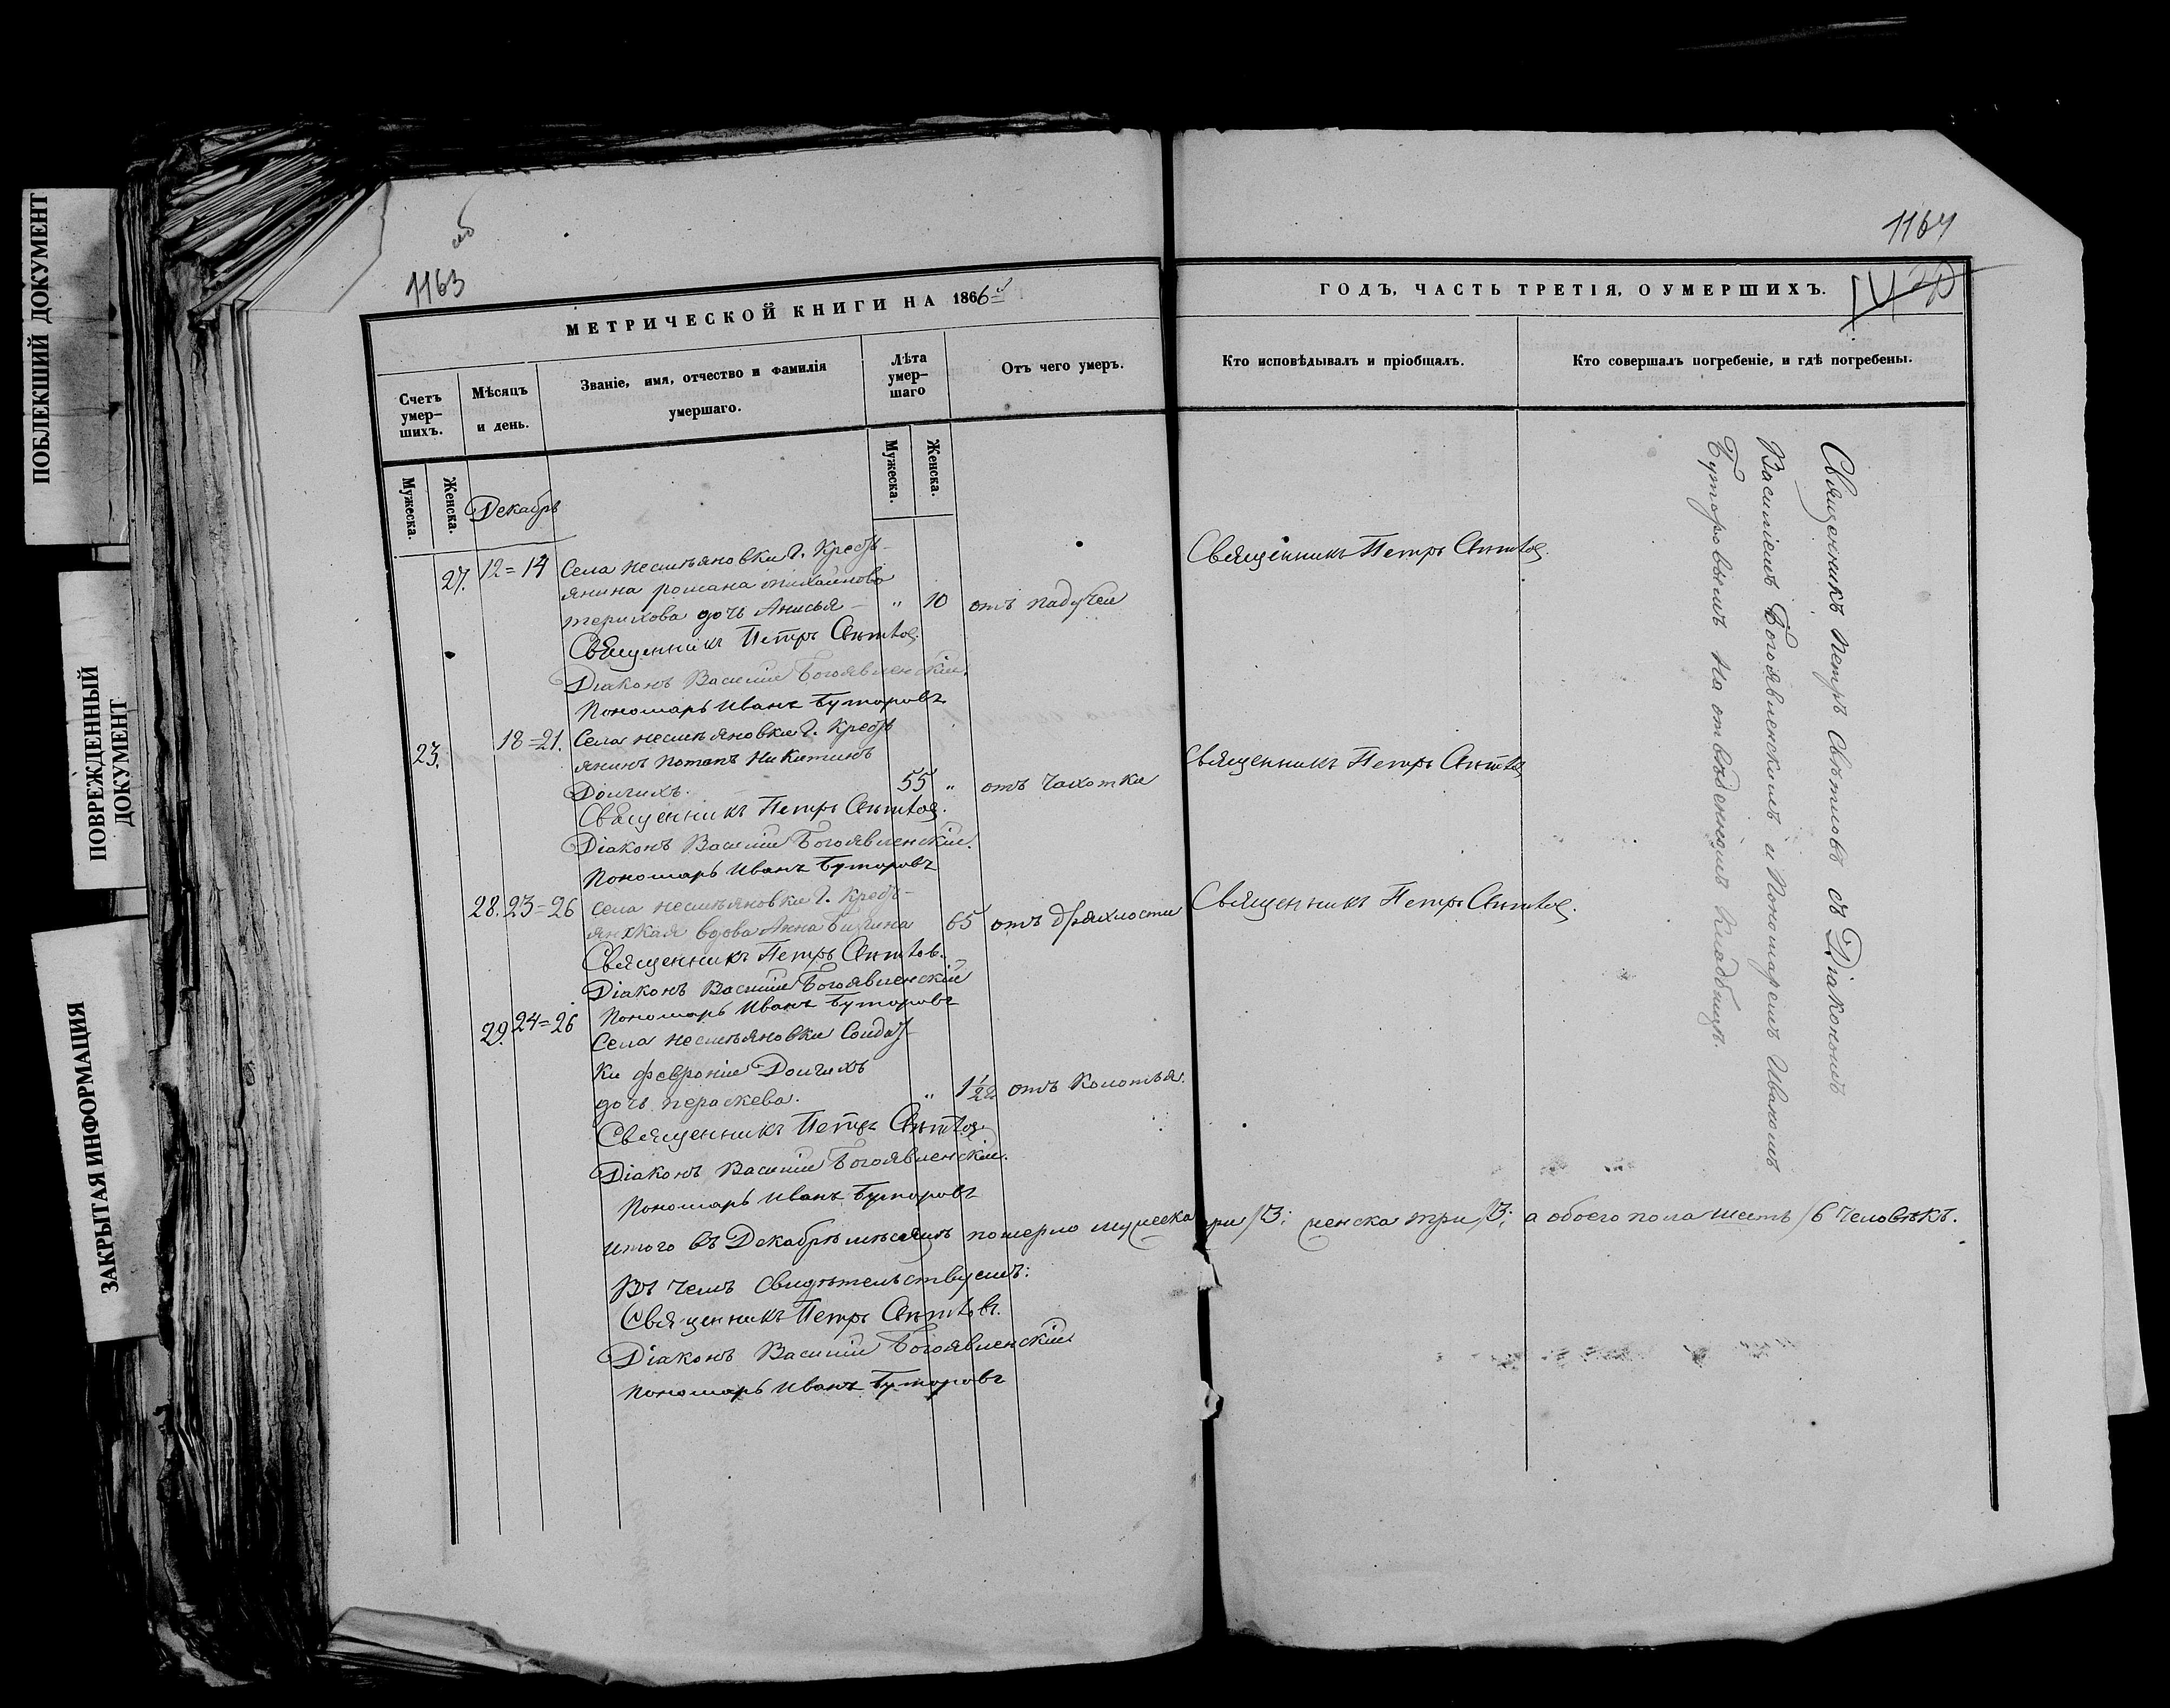 ПОБЛЕКШИЙ ДОКУМЕНТ
ПОВРЕЖДЕННЫЙ
ДОКУМЕНТ
ЗАКРЫТАЯ ИНФОРМАЦИЯ
1163
МЕТРИЧЕСКОЙ КНИГИ НА 1866й
Счетъ
умер-
шихъ.
Мѣсяцъ
и день.
Званіе, имя, отчество и фамилія
умершаго.
Лѣта
умер-
шаго
Отъ чего умеръ.
Мужеска.
Женска.
Мужеска.
Женска.
Декабрь
27. 12=14 Села Несмѣяновки Г. Кресть-
янина Романа
дочь Анисья - " 10 отъ падучей
Священникъ Петръ Свѣтловъ.
Діаконъ Василій Богоявленскій.
Пономарь Иванъ Буторовъ
23. 18=21. Села Несмѣяновки Г. Кресть
янинъ Потапъ Никитинъ
Долгихъ. 55 " отъ чахотки
Священникъ Петръ Свѣтловъ.
Діаконъ Василій Богоявленскій.
Пономарь Иванъ Буторовъ
28. 23=26 села Несмѣяновки Г. Кресть-
янская вдова Анна 65 отъ дряхлости
Священникъ Петръ Свѣтловъ.
Діаконъ Василій Богоявленскій
Пономарь Иванъ Буторовъ
29. 24=26 Села Несмѣяновки Солдат-
ки Февроніи Долгихъ
дочь Параскева. " 1 1/2 отъ колотья.
Священникъ Петръ Свѣтловъ
Діаконъ Василій Богоявленскій.
Пономарь Иванъ Буторовъ
Итого въ Декабрѣ мѣсяцѣ померло мужеска три /3; женска три /3; а обоего пола шесть /6 человѣкъ.
Въ чемъ свидѣтельствуемъ:
Священникъ Петръ Свѣтловъ.
Діаконъ Василій Богоявленскій
Пономарь Иванъ Буторовъ
1164
ГОДЪ, ЧАСТЬ ТРЕТІЯ, О УМЕРШИХЪ.
Кто исповѣдывалъ и пріобщалъ.
Кто совершалъ погребеніе, и гдѣ погребены.
Священникъ Петръ Свѣтловъ.
Священникъ Петръ Свѣтловъ
Священникъ Петръ Свѣтловъ.
Священникъ Петръ Свѣтловъ съ Діакономъ
Василіемъ Богоявленскимъ и Пономаремъ Иваномъ
Буторовымъ на отведенномъ кладбищѣ.